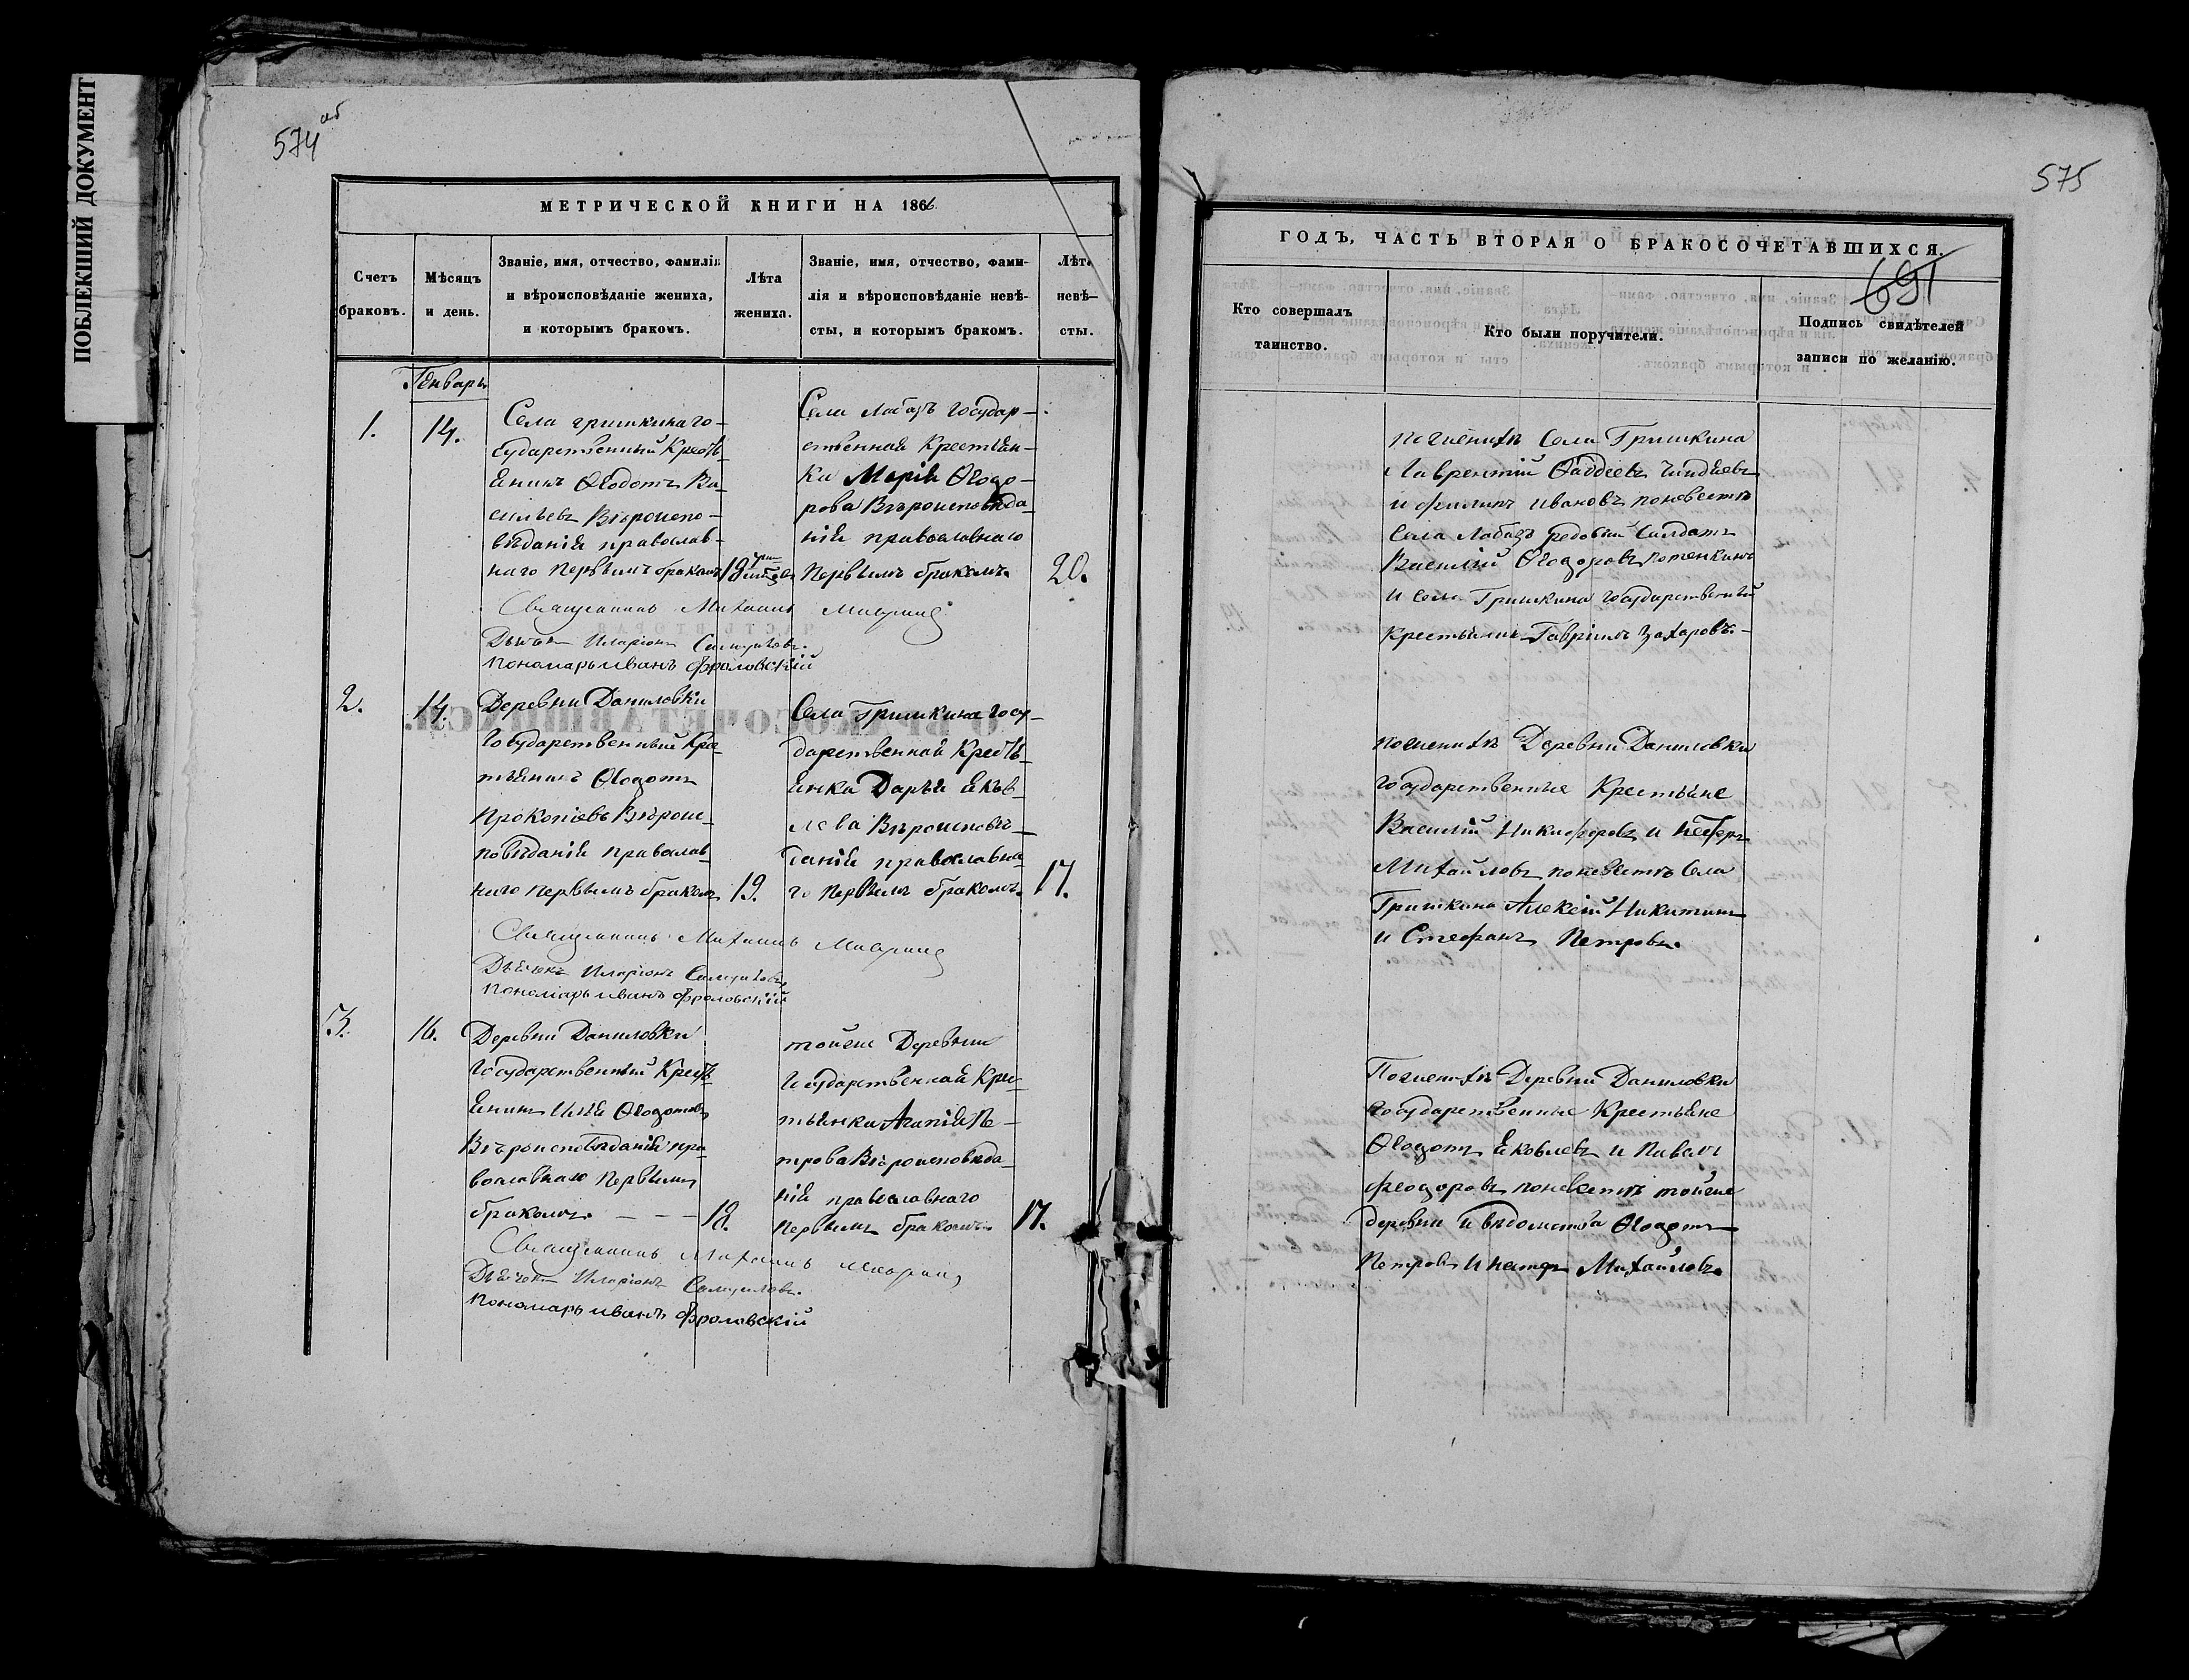 ПОБЛЕКШИЙ ДОКУМЕНТ
574 об
МЕТРИЧЕСКОЙ КНИГИ НА 1866
Счетъ браковъ.
Мѣсяцъ и день.
Званіе, имя, отчество, фамилія и вѣроисповѣданіе жениха, и которымъ бракомъ.
Лѣта жениха.
Званіе, имя, отчество, фамилія и вѣроисповѣданіе невѣсты, и которымъ бракомъ.
Лѣта невѣсты.
Генварь
1.
14.
Села гришкина го-
сударственный Кресть
янинъ Ѳеодотъ Ва-
сильевъ Вѣроиспо-
вѣданія православ-
наго Первымъ бракомъ
18
Села Лабазъ государ-
ственная Крестьян-
ка Марія Ѳеодо-
рова Вѣроисповѣда-
нія православнаго
Первымъ бракомъ.
20.
Священникъ Михаилъ
Дьячекъ Иларіонъ
Пономарь Иванъ Фроловскій
2.
14.
Деревни Даниловки
Государственный Крес
тьянинъ Ѳеодотъ
Прокопіевъ Вѣроис-
повѣданія православ-
наго первымъ бракомъ
19.
Села Гришкина Госу-
дарственная Кресть-
янка Дарья Яков-
лева Вѣроисповѣ-
данія православна
го первымъ бракомъ.
17.
Священникъ Михаилъ
Дьячекъ Иларіонъ
Пономарь Иванъ Фроловскій
3.
16.
Деревни Даниловки
Государственный Кресть
янинъ Илья Ѳеодотовъ
Вѣроисповѣданія пра
вославнаго Первымъ
бракомъ.
18.
тойже Деревни
Государственная Крес-
тьянка Агапія Пе-
трова Вѣроисповѣда-
нія православнаго
первымъ бракомъ.
17.
Священникъ Михаилъ
Дьячекъ Иларіонъ
Пономарь Иванъ Фроловскій
575
ГОДЪ, ЧАСТЬ ВТОРАЯ О БРАКОСОЧЕТАВШИХСЯ.
691
Кто совершалъ таинство.
Кто были поручители.
Подпись свидѣтелей записи по желанію.
по женихѣ Села Гришкина
Лаврентій Ѳаддеевъ
и филипъ ивановъ поневестѣ
Села Лабазъ редовый Салдатъ
Василій Ѳеодоровъ потенкинъ
и села Гришкина государственный
крестьянинъ Гавріилъ Захаровъ.
поженихѣ Деревни Даниловки
государственные Крестьяне
Василій Никифоровъ и Петръ
Михайловъ поневестѣ Села
Гришкина Алексій Никитинъ
и Стефанъ Петровъ.
Поженихѣ Деревни Даниловки
государственные Крестьяне
Ѳеодотъ Яковлевъ и Павелъ
феодоровъ поневестѣ тойже
деревни и вѣдомства Ѳеодотъ
Петровъ и петръ Михайловъ.